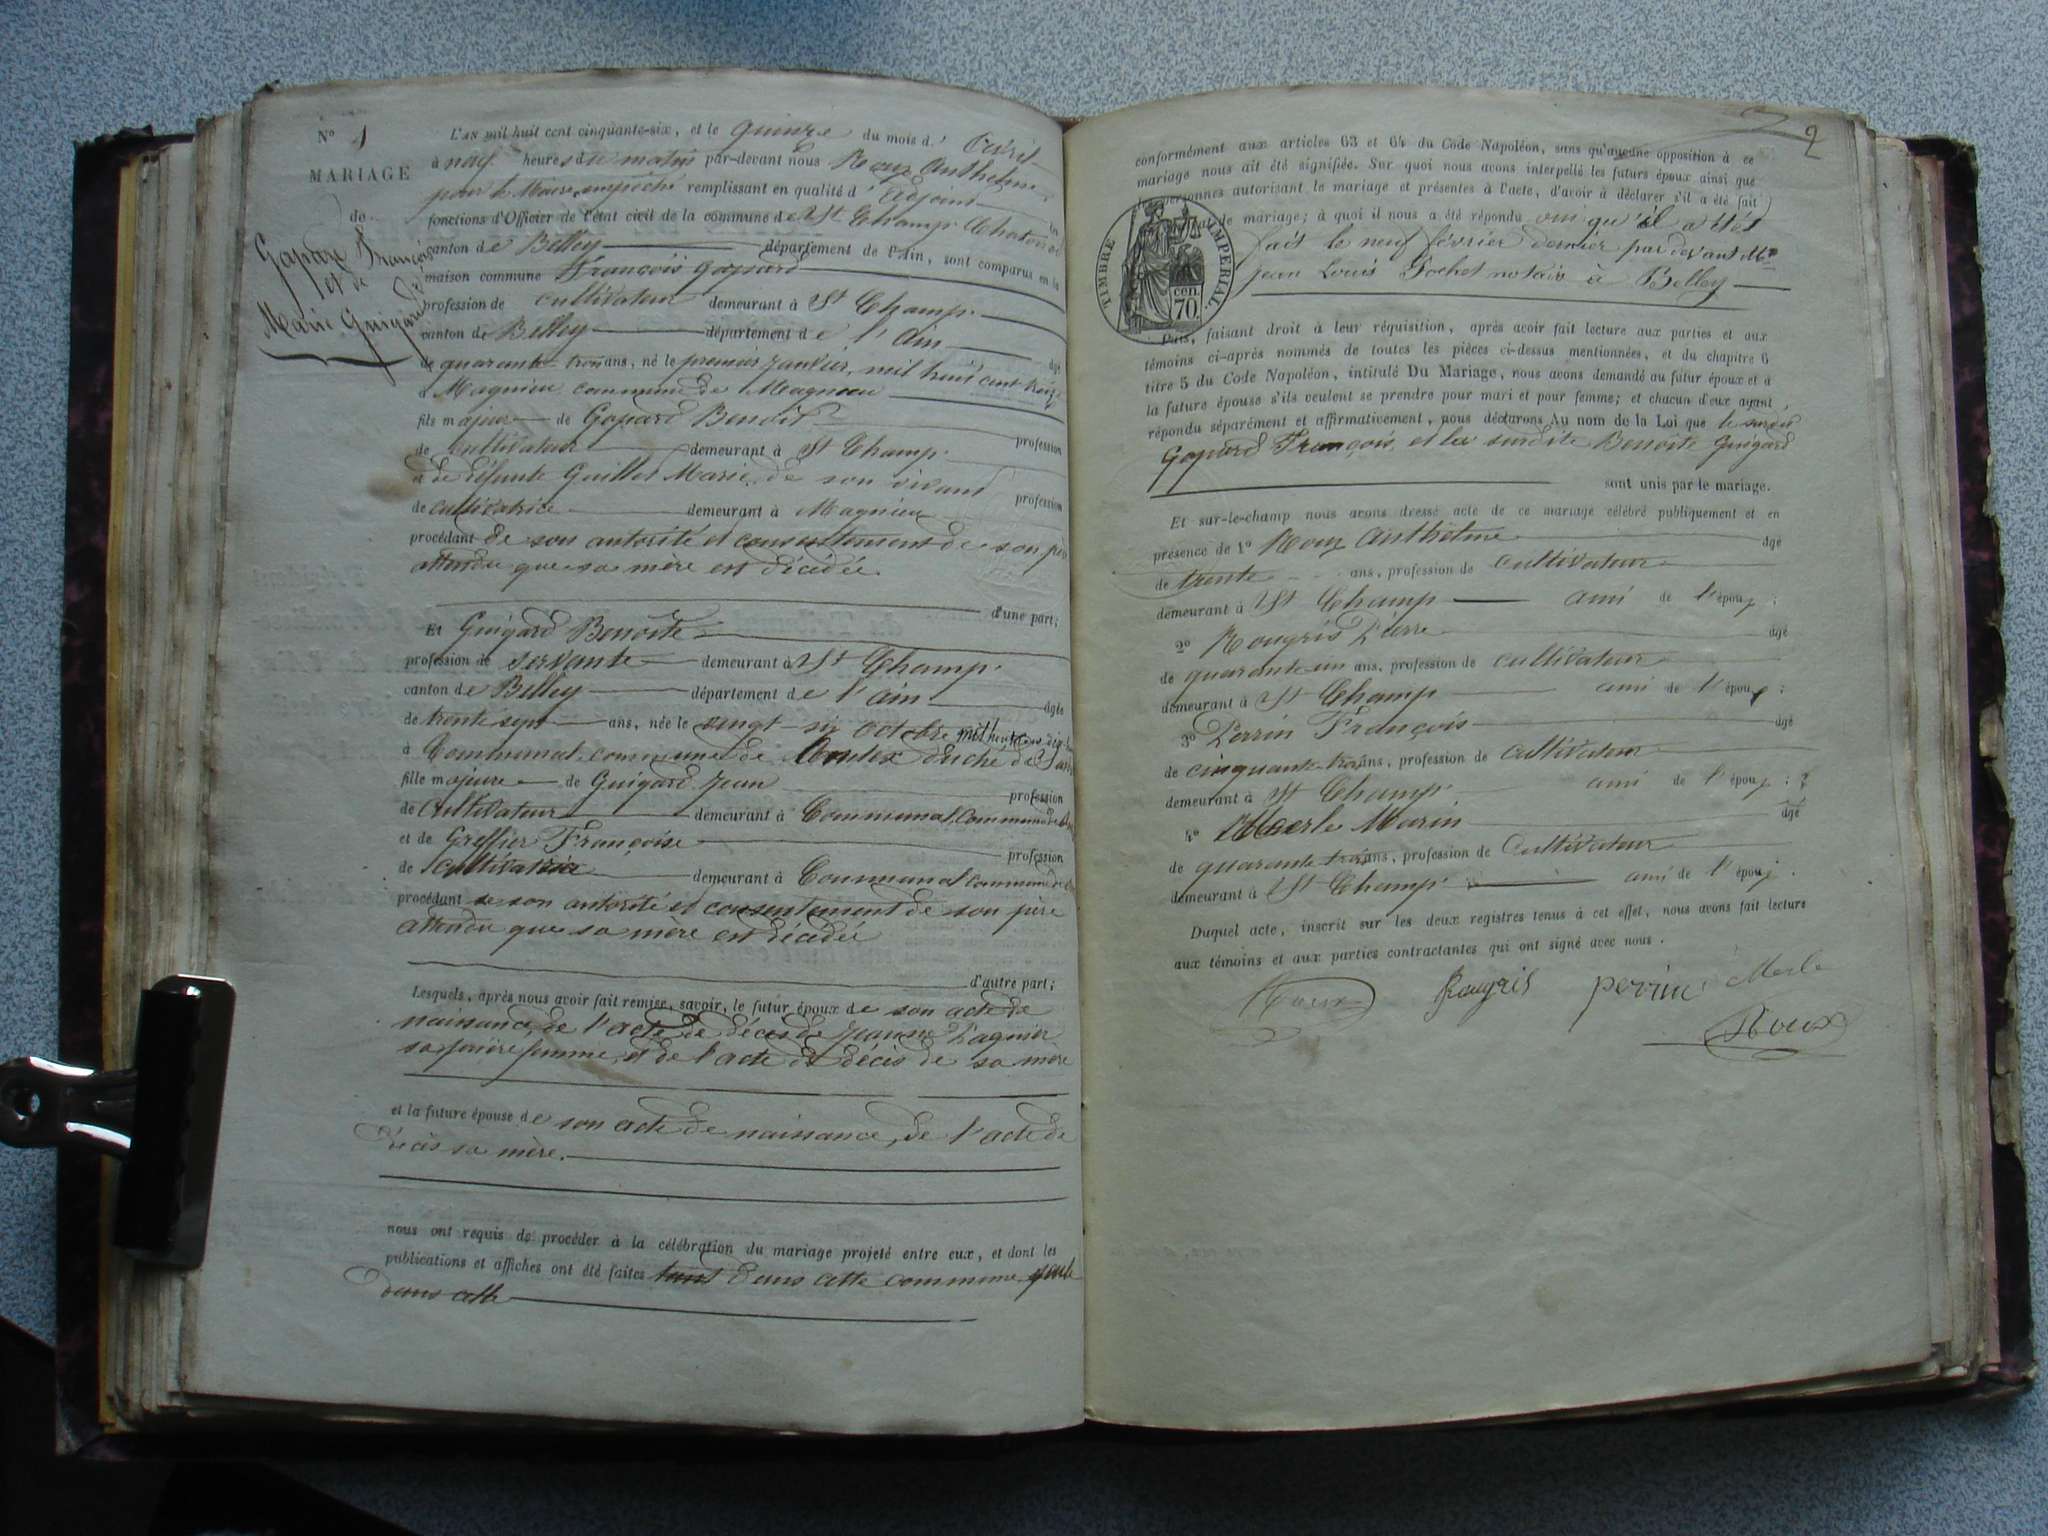 N° 1
MARIAGE
de
Gapard François
et de
Marie Guigard
L'an mil huit cent cinquante-six, et le quinze du mois d' Avril
à neuf heures du matin par-devant nous Roux Anthelme
pour le Maire empêché remplissant en qualité d' Adjoint
fonctions d'Officier de l'état civil de la commune de St Champ Chatonod
canton de Belley département de l'Ain, sont comparus en la
maison commune François Gapard
profession de cultivateur demeurant à St Champ
canton de Belley département de l'Ain âgé
de quarante trois ans, né le premier janvier, mil huit cent treize
à Magnieu commune de Magnieu
fils majeur de Gapard Benoit profession
de Cultivateur demeurant à St Champ
et de défunte Guillet Marie, de son vivant profession
de cultivatrice demeurant à Magnieu
procédant de son autorité et consentement de son père
attendu que sa mère est décédée.
d'une part;
Et Guigard Benoite
profession de servante demeurant à St Champ.
canton de Belley département de l'ain âgée
de trente sept ans, née le vingt six octobre mil huit cent dix
à Communal, commune de duché de
fille majeure de Guigard Jean profession
de Cultivateur demeurant à Communal, Commune de
et de Greffier Françoise profession
de cultivatrice demeurant à Communal commune de
procédant de son autorité et consentement de son père
attendu que sa mère est décédée
d'autre part;
Lesquels, après nous avoir fait remise, savoir, le futur époux de son acte de
naissance, de l'acte de décès de Jeanne Pagnier
sa première femme, et de l'acte de décès de sa mère
et la future épouse de son acte de naissance, de l'acte de
décès sa mère.
nous ont requis de procéder à la célébration du mariage projeté entre eux, et dont les
publications et affiches ont été faites tant dans cette commune
dans cette
2
conformément aux articles 63 et 64 du Code Napoléon, sans qu'aucune opposition à ce
mariage nous ait été signifiée. Sur quoi nous avons interpellé les futurs époux ainsi que
personnes autorisant le mariage et présentes à l'acte, d'avoir à déclarer s'il a été fait
de mariage; à quoi il nous a été répondu oui qu'il a été
fait le neuf février dernier par devant Me
jean Louis Pochet notaire à Belley
TIMBRE IMPERIAL
70 cen.
Puis, faisant droit à leur réquisition, après avoir fait lecture aux parties et aux
témoins ci-après nommés de toutes les pièces ci-dessus mentionnées, et du chapitre 6
titre 5 du Code Napoléon, intitulé Du Mariage, nous avons demandé au futur époux et à
la future épouse s'ils veulent se prendre pour mari et pour femme; et chacun d'eux ayant
répondu séparément et affirmativement, nous déclarons Au nom de la Loi que le surdit
Gapard François, et la surdite Benoite Guigard
sont unis par le mariage.
Et sur-le-champ nous avons dressé acte de ce mariage célébré publiquement et en
présence de 1° Roux Anthelme âgé
de trente ans, profession de cultivateur
demeurant à St Champ ami de l'époux;
2° Rougris Pierre âgé
de quarante un ans, profession de cultivateur
demeurant à St Champ ami de l'époux;
3° Perrin François âgé
de cinquante trois ans, profession de cultivateur
demeurant à St Champ ami de l'époux;
4° Merle Marin âgé
de quarante trois ans, profession de Cultivateur
demeurant à St Champ ami de l'époux.
Duquel acte, inscrit sur les deux registres tenus à cet effet, nous avons fait lecture
aux témoins et aux parties contractantes qui ont signé avec nous.
Roux Rougris perrin Merle
Roux